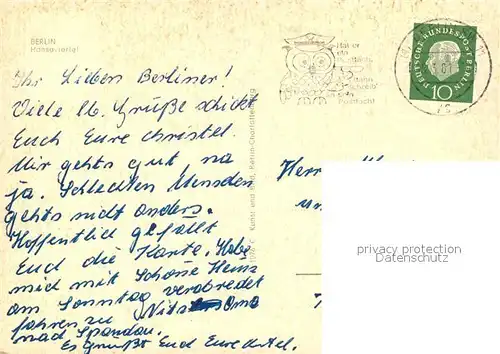 BERLIN
Hansaviertel
Ihr Lieben Berliner!
Viele lb. Grüße schickt
Euch Eure Christel.
Mir gehts gut, na
ja. Schlechten Menschen
gehts nicht anders.
Hoffentlich gefällt
Euch die Karte. Habe
mich mit
am Sonntag verabredet
Oma
fahren zu
nach Spandau.
Es grüßt Euch Eure
Kunst und Bild, Berlin-Charlottenburg
DEUTSCHE BUNDESPOST BERLIN
10
Postfach
Herrn
privacy protection
Datenschutz